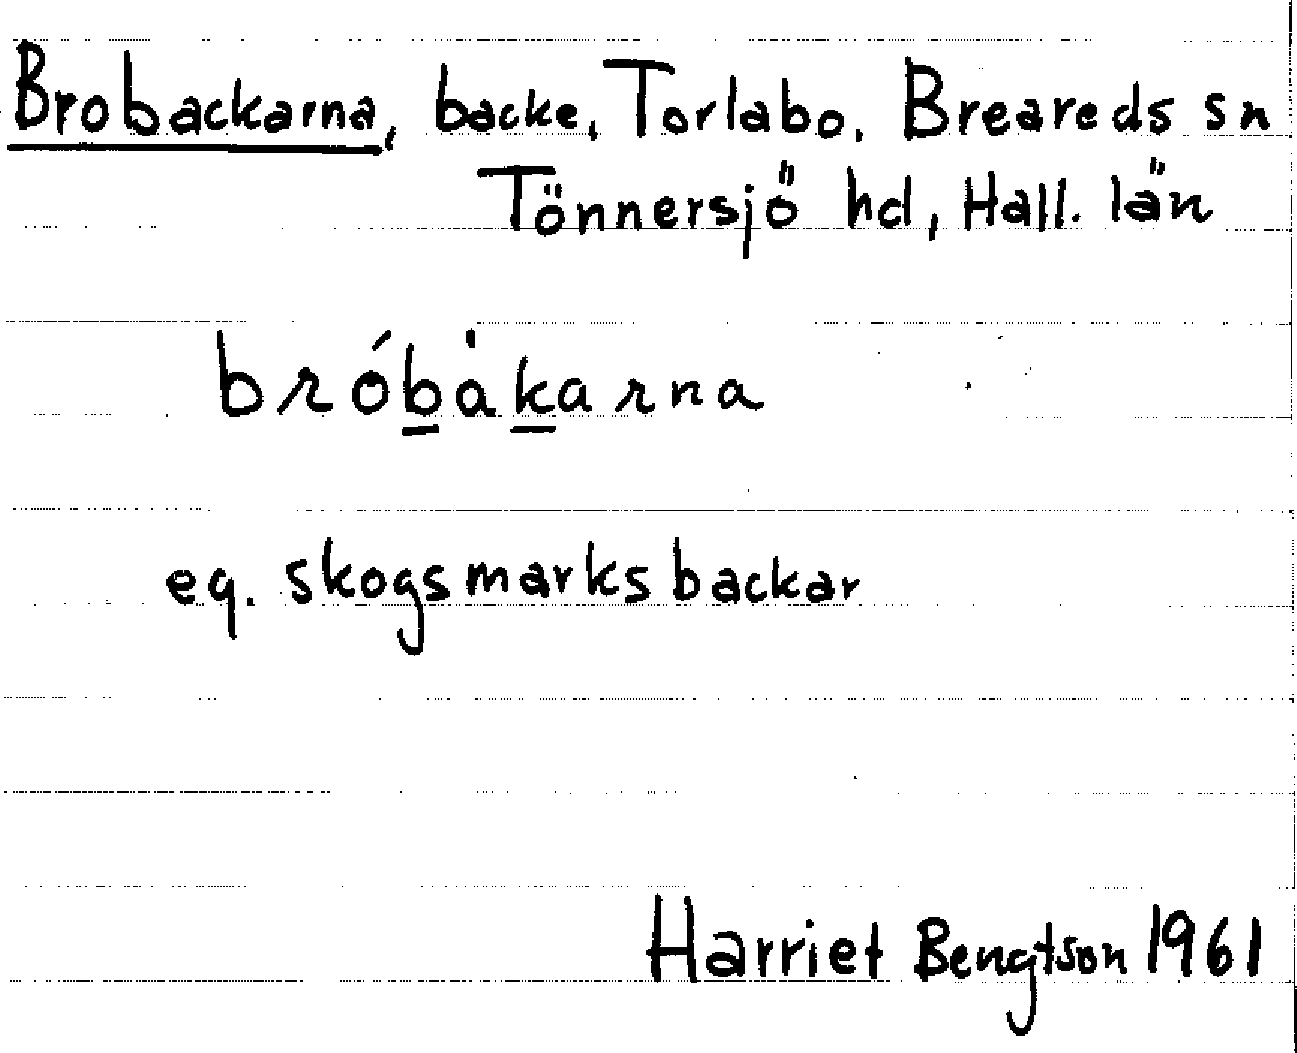 Brobackarna, backe, Torlabo. Breareds sn
Tönnersjö hd, Hall. län
bróbàkarna
eg. skogsmarksbackar
Harriet Bengtson 1961